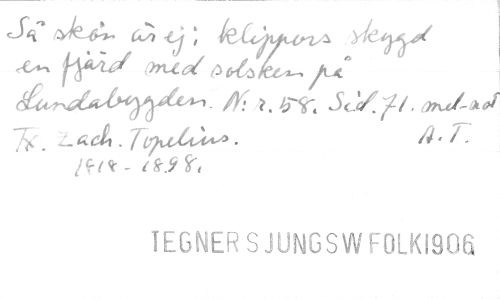 Så skön är ej i klippors skygd
en fjärd med solsken på
Lundabygden. N:r. 58. Sid. 71. mel-not
Tx. Zach. Topelius. A.T.
1818-1898.
TEGNER SJUNGSWFOLK1906